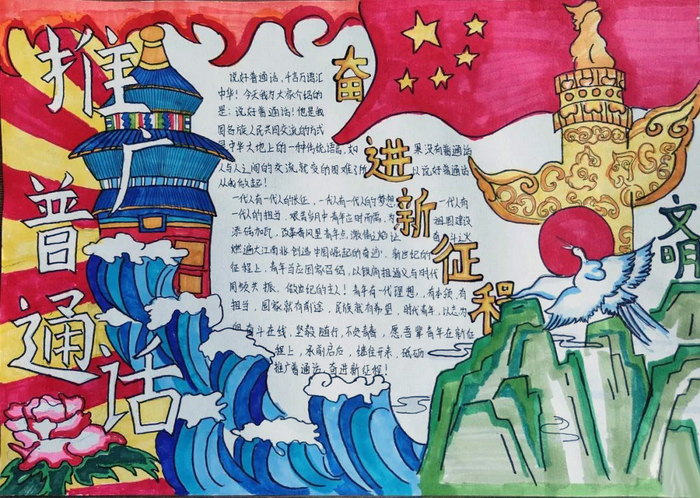 推广普通话
奋进新征程
文明
说好普通话，千言万语汇
中华！今天我为大家介绍的
是：说好普通话！他是我
国各族人民共同交流的方式
是中华大地上的一种传统语言，如果没有普通话
人与人之间的交流就变的困难
以说好普通话
从我做起！
一代人有一代人的长征，一代人有一代人的梦想
一代人有
一代人的担当
祖国建设
添砖加瓦，改革春风里青年点
燃遍大江南北创造中国崛起的奇迹，新世纪的
征程上，青年当应国家召唤，以
同频共振，做世纪的主人！青年有一代理想，有本领，有
担当，国家就有前途，民族就有希望，时代青年，以志为
奋斗在线，坚毅随行，不央青春，愿吾辈青年在新征
程上，承前启后，继往开来，砥砺
推广普通话，奋进新征程！